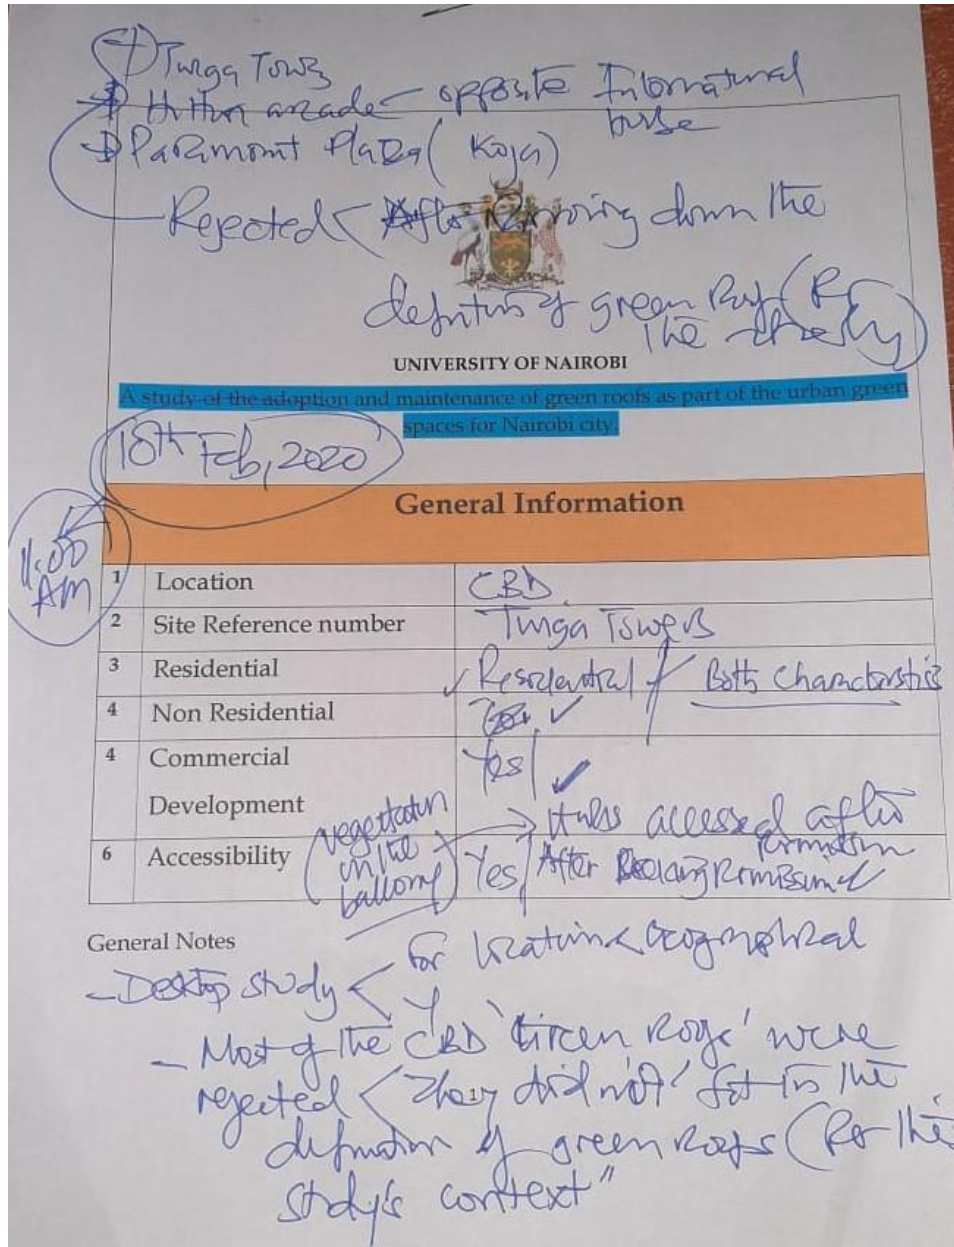 Turga Towers
Hilton arcade opposite International
house
Paramont Plaza (Koja)
Rejected < After narrowing down the
definition of green Roofs (For
the study)
UNIVERSITY OF NAIROBI
A study of the adoption and maintenance of green roofs as part of the urban green
spaces for Nairobi city.
18th Feb, 2020
11:00
AM
General Information
1 Location CBD
2 Site Reference number Turga Towers
3 Residential Residential Both Characteristics
4 Non Residential
4 Commercial Yes
Development
vegetation
in the
balcony
It was accessed after
permission
6 Accessibility Yes After Seeking Permission
General Notes
- Desktop study < for location & Geographical
- Most of the CBD 'Green Roofs' were
rejected < They did not fit in the
17
definition of green roofs (For the
study's context"